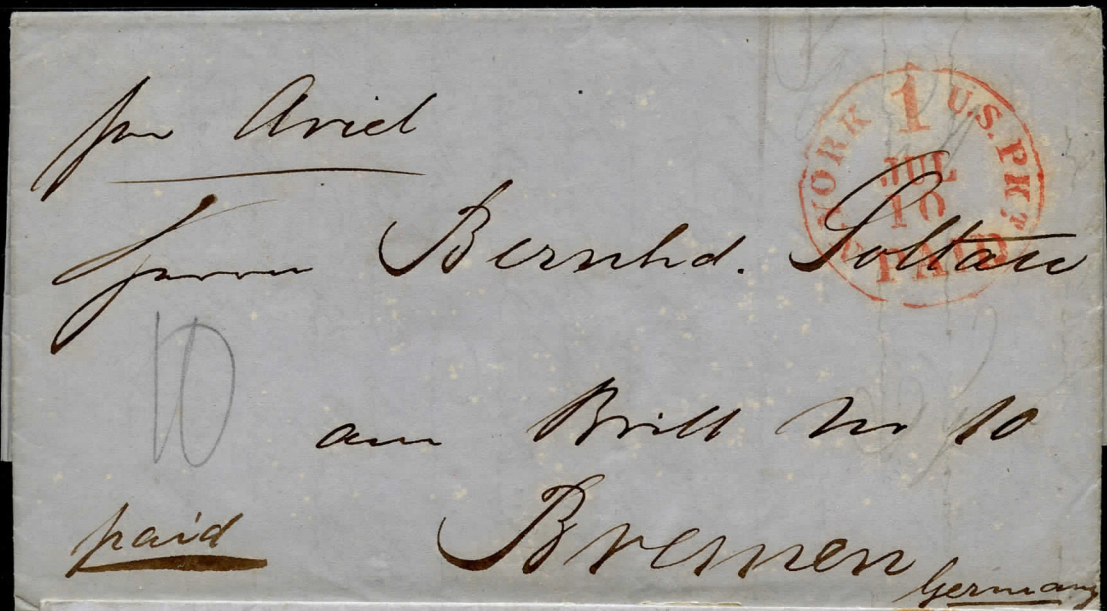 per Ariel
Herrn Bernhd. Soltau
10
am Brill No 10
paid
Bremen
Germany
YORK U.S. PKT
1
JUL
10
PAID